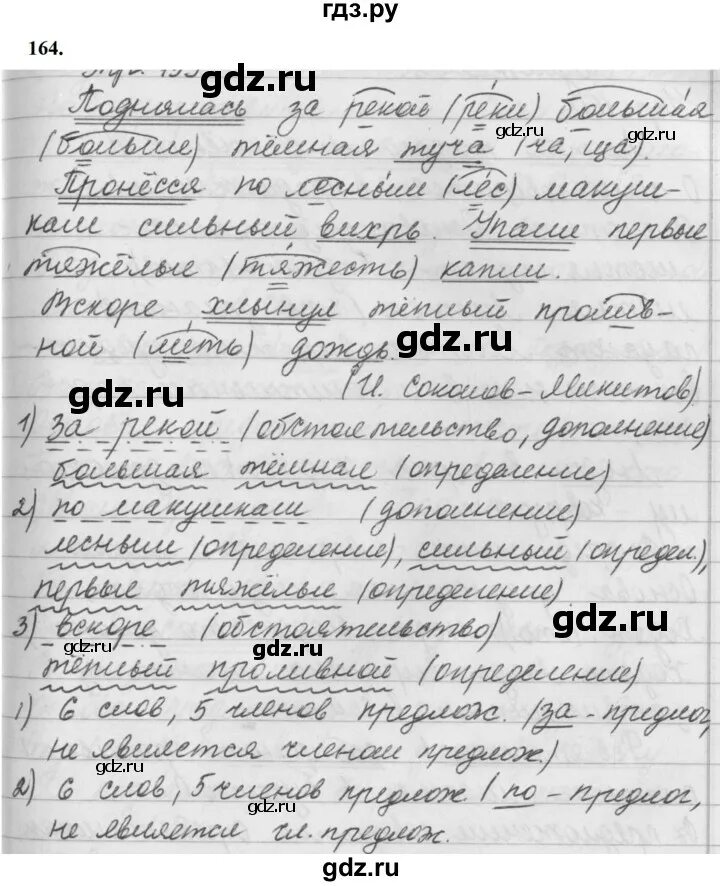 гдз.ру
164.
Поднялась за рекой (ре́ки) больша́я
(бо́льше) тёмная туча (ча, ща).
Пронёсся по лесны́м (ле́с) макуш-
кам сильный вихрь. Упали первые
тяжёлые (тя́жесть) капли.
Вскоре хлынул тёплый пролив-
ной (ли́ть) дождь.
(И. Соколов-Микитов)
1) за рекой (обстоятельство, дополнение)
большая тёмная (определение)
2) по макушкам (дополнение)
лесным (определение), сильный (определ.),
первые тяжёлые (определение)
3) вскоре (обстоятельство)
тёплый проливной (определение)
1) 6 слов, 5 членов предлож. (за - предлог,
не является членом предлож.)
2) 6 слов, 5 членов предлож. (по - предлог,
не является чл. предлож.
gdz.ru